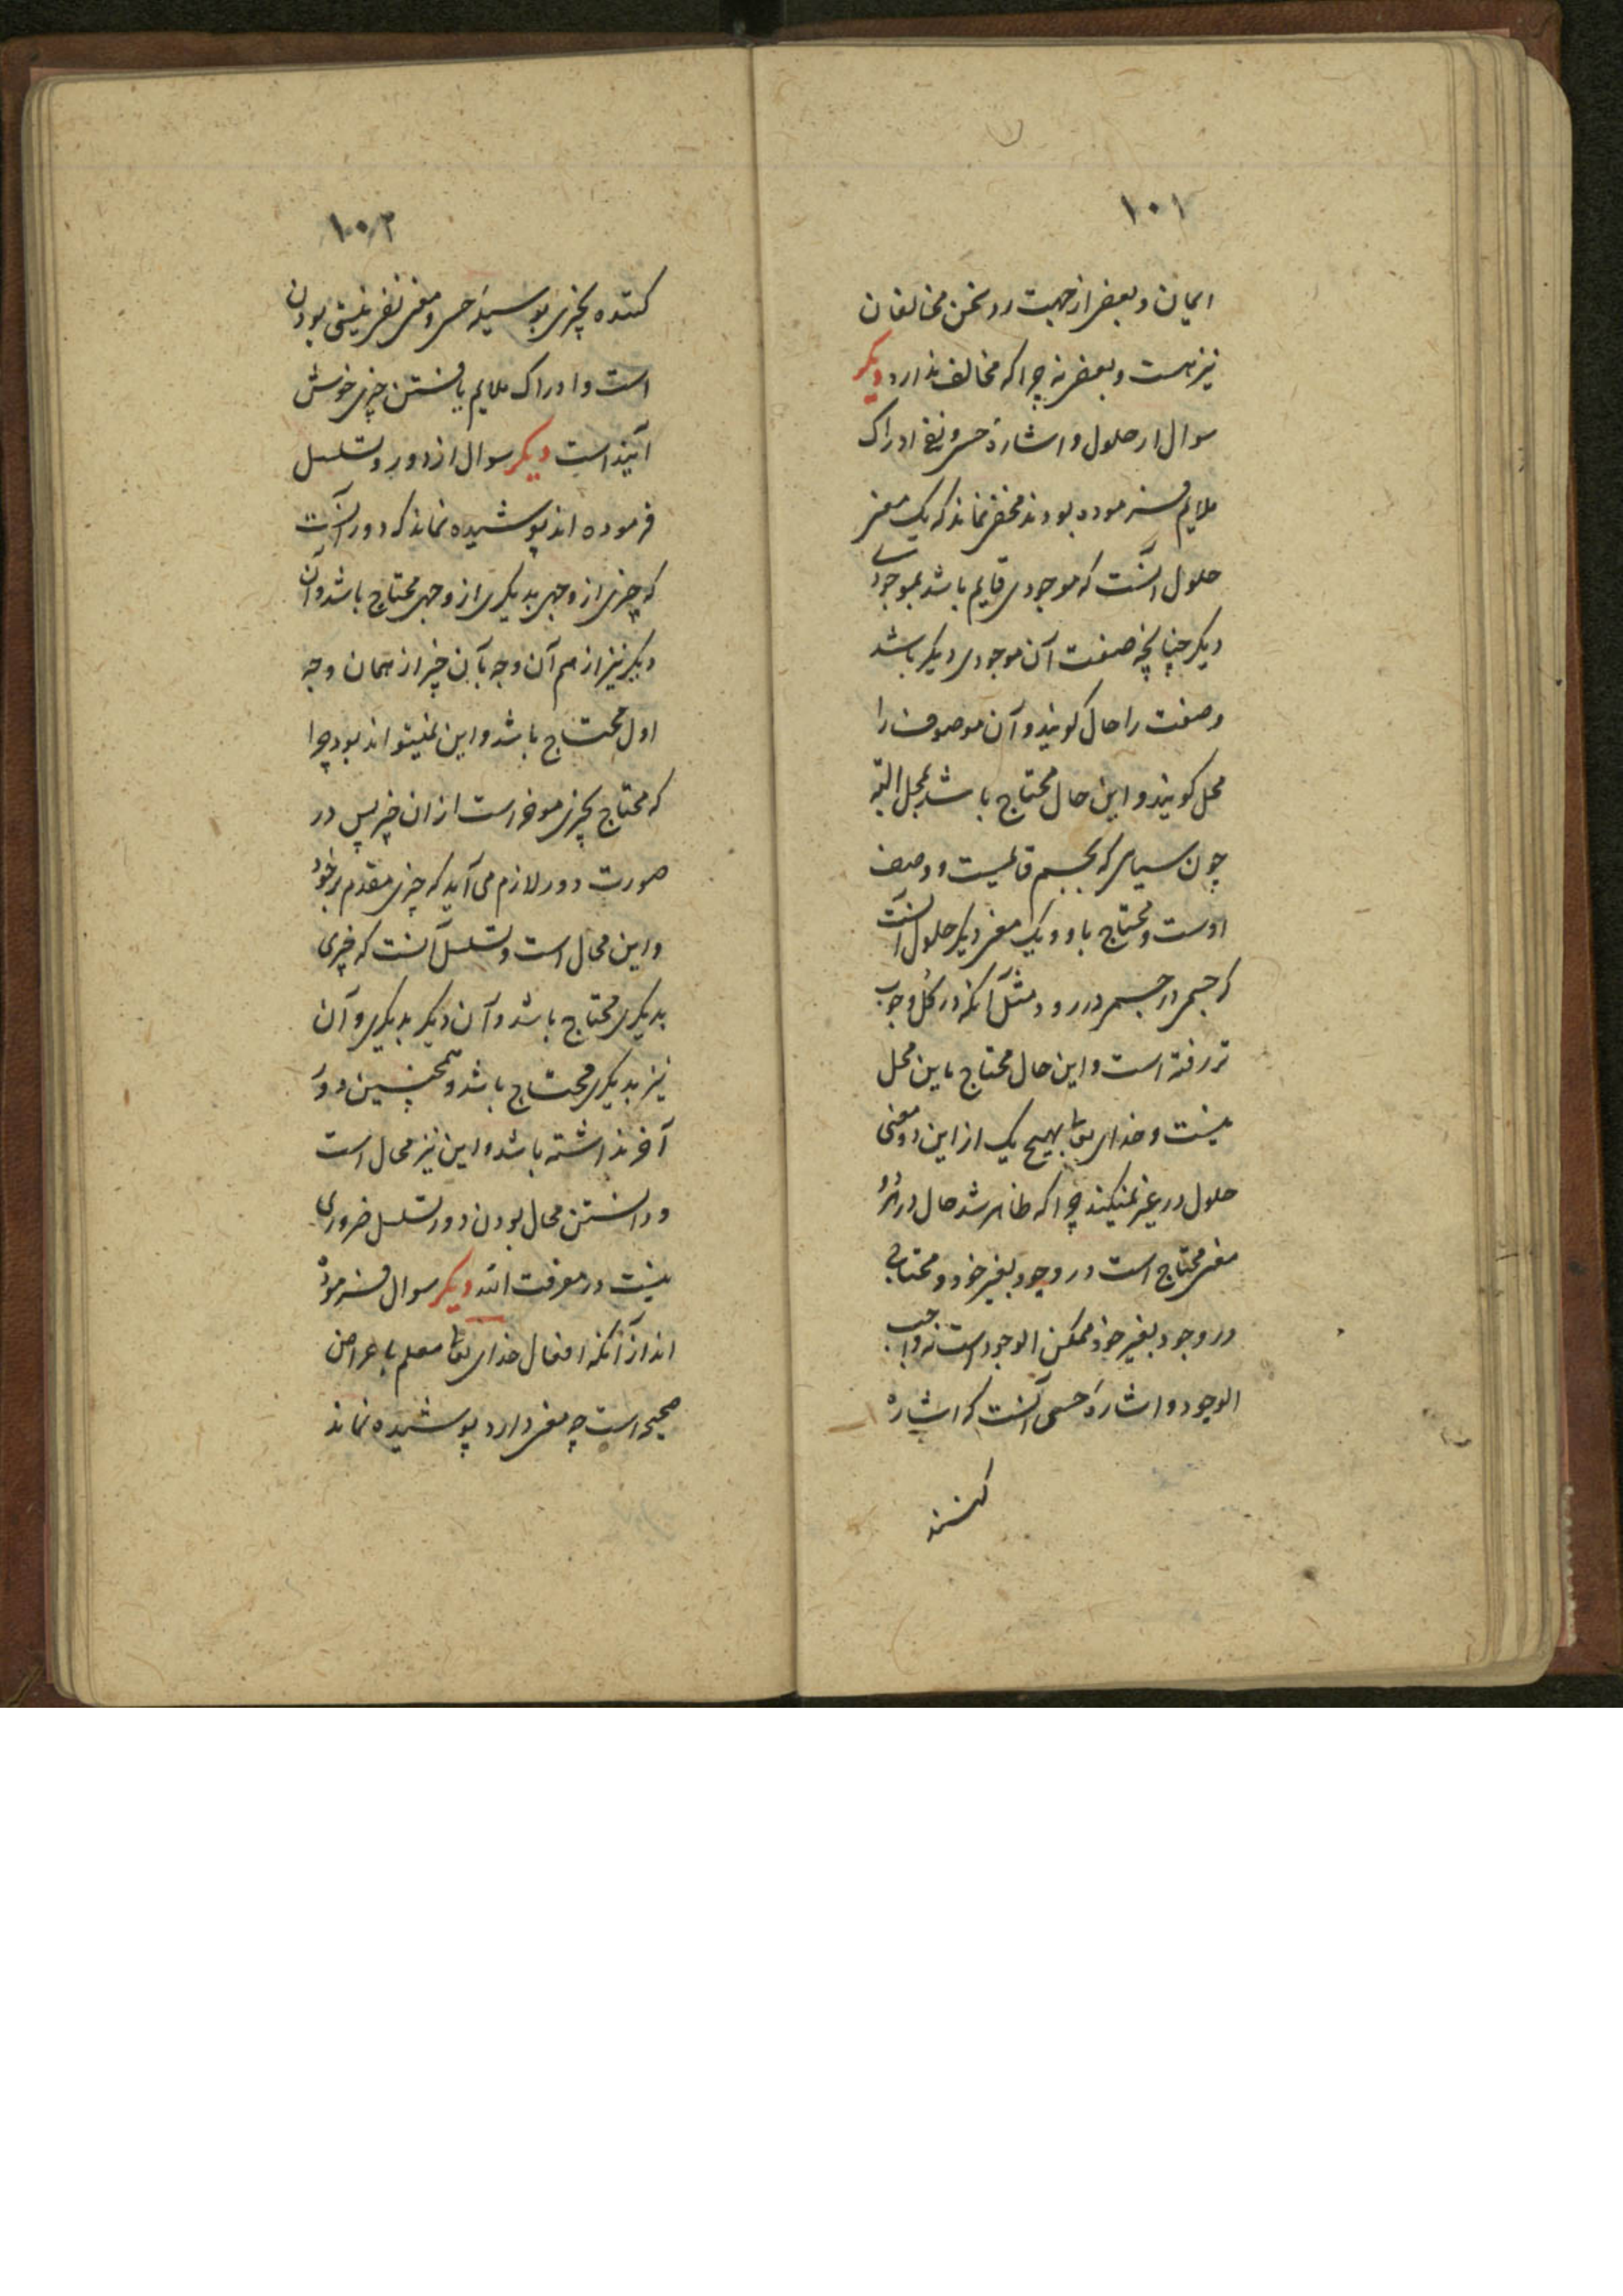 ۱۰۱
ایمان و بعضی از جهت رد سخن مخالفان
نیز هست و بعضی نه چرا که مخالف ندارد دیکر
سوال از حلول و اشارهٔ حسی و نفی ادراک
ملایم فرموده بودند مخفی نماند که یک معنی
حلول آنست که موجودی قایم باشد بموجودی
دیکر چنانچه صفت آن موجودی دیکر باشد
و صفت را حال کویند و آن موصوف را
محل کویند و این حال محتاج باشد بمحل البته
چون سیاهی که بجسم قایمست و وصف
اوست و محتاج باو و یک معنی دیکر حلول آنست
که جسمی در جسمی در رود مثل آنکه در کل و چوب
تر رفته است و این حال محتاج باین محل
نیست و خدای تعا بهیچ یک از این دو معنی
حلول در غیر نمیکند چرا که ظاهر شد حال در هر دو
معنی محتاج است در وجود بغیر خود و محتاج
در وجود بغیر خود ممکن الوجود است نه واجب
الوجود و اشارهٔ حسی آنست که اشاره
کنند
۱۰۲
کننده بچیزی بوسیلهٔ حس و معنی نفی نیستی بودن
است و ادراک ملایم یافتن چیزی خوش
آینده است دیکر سوال از دور و تسلسل
فرموده اند پوشیده نماند که دور آنست
که چیزی از وجهی بدیکری از وجهی محتاج باشد و آن
دیکر نیز از هم آن وجه بآن چیز از همان وجه
اول محتاج باشد و این نمیتواند بود چرا
که محتاج بچیزی موخر است از ان چیز پس در
صورت دور لازم می آید که چیزی مقدم بر خود
و این محال است و تسلسل آنست که چیزی
بدیکری محتاج باشد و آن دیکر بدیکری و آن
نیز بدیکری محتاج باشد و همچنین دور
آخر نداشته باشد و این نیز محال است
و دانستن محال بودن دور و تسلسل ضروری
نیست در معرفت الله دیکر سوال فرموده
اند از آنکه افعال خدای تعا معلم باعراض
صحیحه است چه معنی دارد پوشیده نماند